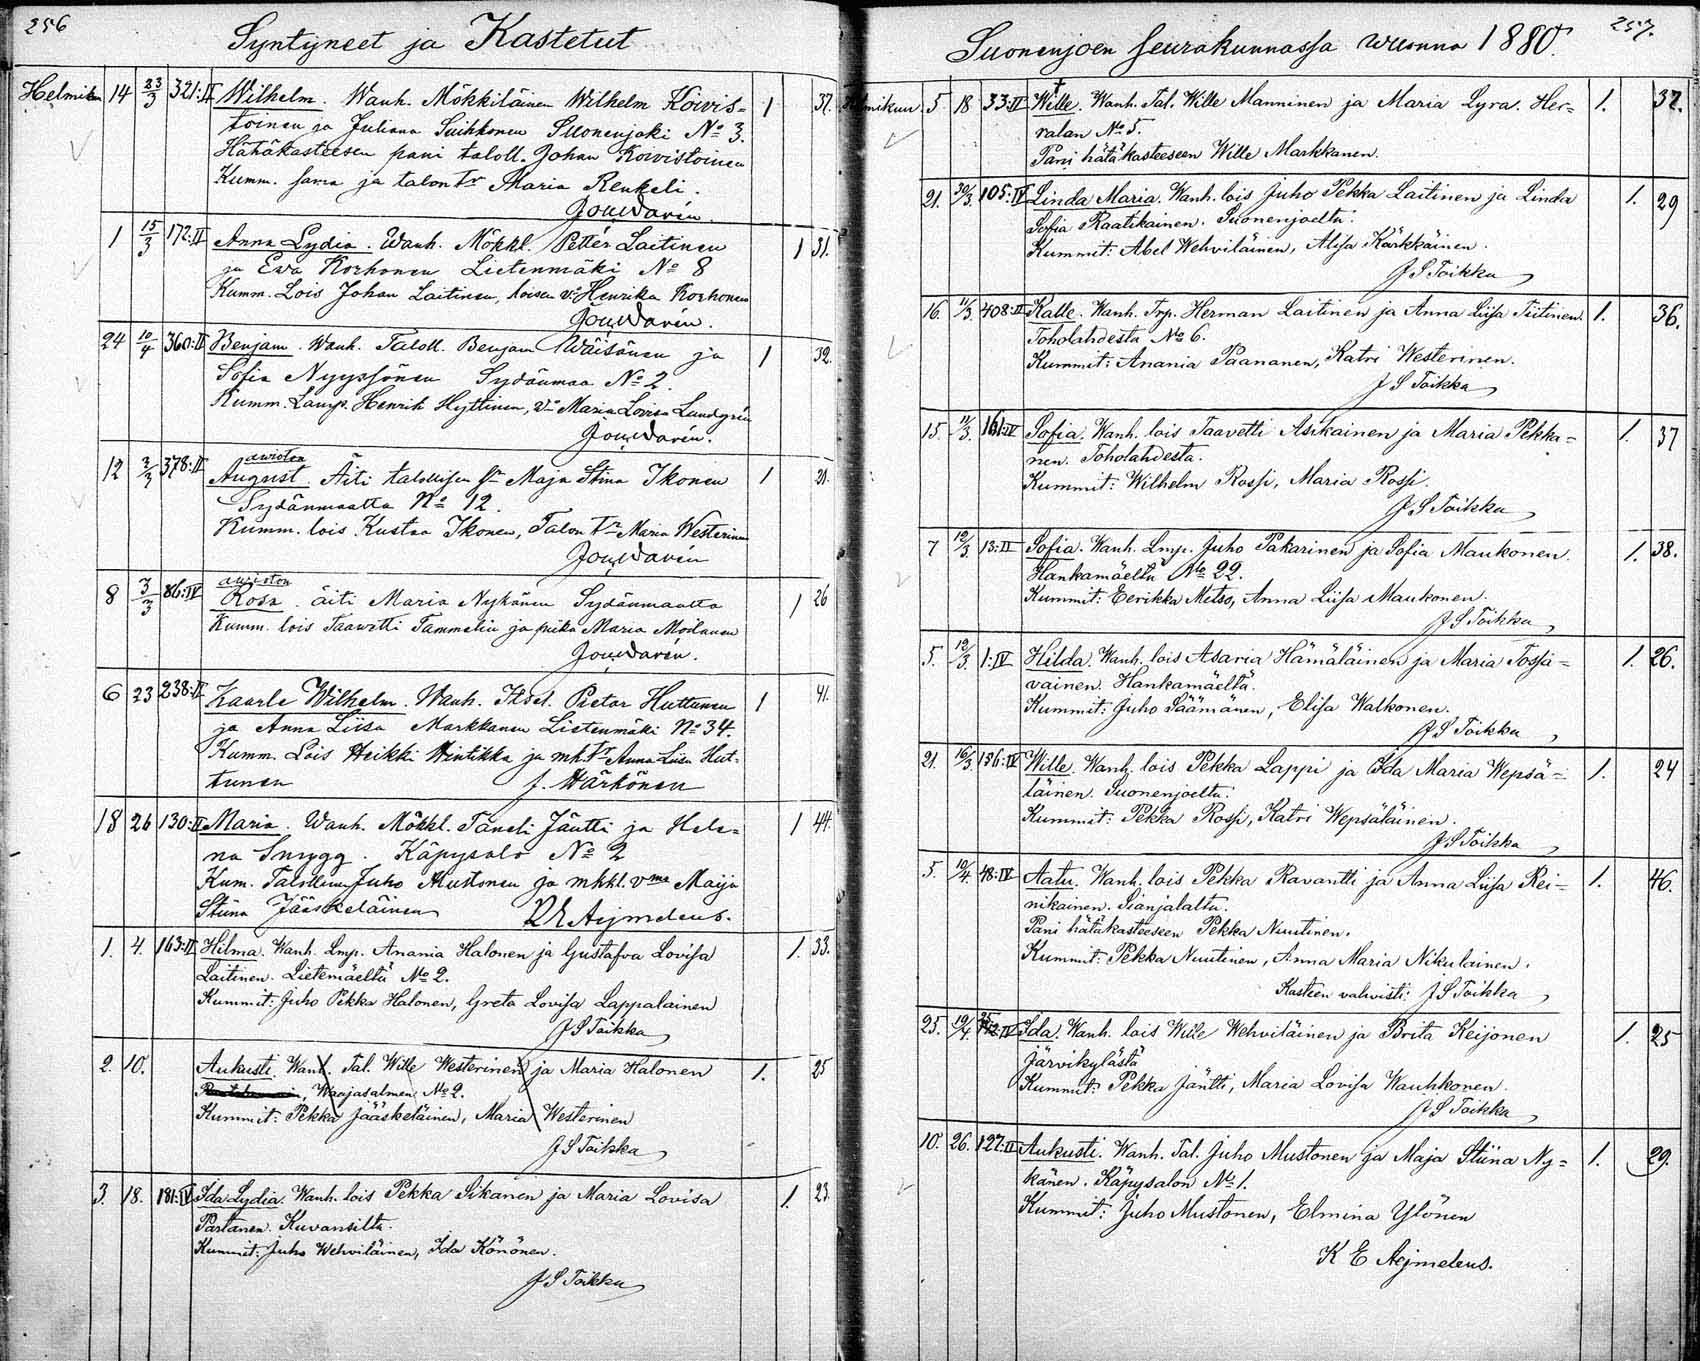 256
Syntyneet ja Kastetut
Helmikuu 14 23/3 321:II Wilhelm. Wanh. Mökkiläinen Wilhelm Koivis- 1 37.
toinen ja Juliana Suihkonen Suonenjoki No 3.
Hätäkasteesen pani taloll. Johan Koivistoinen
Kumm. sama ja talon tr Maria Renkeli.
1 15/3 172:II Anna Lydia. Wanh. Mökkl. Petter Laitinen 1 31.
ja Ewa Korhonen Lietenmäki No 8
Kumm. Lois Johan Laitinen, loisen vo Henrika Korhonen
24 10/4 360:II Benjam. Wanh. Taloll. Benjam Wäisänen ja 1 32.
Sofia Nyyssönen Sydänmaa No 2.
Kumm. Lamp. Henrik Hyttinen, vo Maria Lovisa Lundgrén
awioton
12 378:II August. Äiti talollisen tr Maja Stina Ikonen 1 21.
Sydänmaalta No 12.
Kumm. lois Kustaa Ikonen, Talon tr Maria Westerinen
awioton
8 7/3 86:IV Rosa. äiti Maria Nykänen Sydänmaalta 1 26
Kumm. lois Taawetti Tammelin ja piika Maria Moilanen
6 23 238:II Kaarle Wilhelm. Wanh. Itsel. Pietar Huttunen 1 41.
ja Anna Liisa Markkanen Lietenmäki No 34.
Kumm. Lois Heikki Hintikka ja mk. tr Anna Liisa Hut-
tunen J. Wärkönen
18 26 130:II Maria. Wanh. Mökkl. Taneli Jäntti ja Hele- 1 44.
na Snygg. Käpysalo No 2
Kum. Talollinen Juho Mustonen ja mkkl. vmo Maija
Stiina Jääskeläinen K E Aejmeleus.
1. 4. 163:II Hilma. Wanh. Lmp. Anania Halonen ja Gustafva Lovisa 1. 33.
Laitinen. Lietemäeltä No 2.
Kummit: Juho Pekka Halonen, Greta Lovisa Lappalainen
J S Toikka
2. 10. Aukusti. Wanh. Tal. Wille Westerinen ja Maria Halonen 1. 25
, Waajasalmen No 2.
Kummit: Pekka Jääskeläinen, Maria Westerinen
J S Toikka
3. 18. 181:IV Ida Lydia. Wanh. lois Pekka Sikanen ja Maria Lovisa 1. 23.
Partanen. Kuvansilta.
Kummit: Juho Wehviläinen, Ida Könönen.
J S Toikka
257.
Suonenjoen seurakunnassa wuonna 1880.
Helmikun. 5. 18 33:II Wille. Wanh. Tal. Wille Manninen ja Maria Lyra. Her- 1. 37.
ralan No 5.
Pani hätäkasteeseen Wille Markkanen.
21. 30/3. 105:IV Linda Maria. Wanh. lois Juho Pekka Laitinen ja Linda 1. 29
Sofia Raatikainen. Suonenjoelta.
Kummit: Abel Wehviläinen, Alisa Kärkkäinen.
J S Toikka
16. 11/3. 408:II Kalle. Wanh. Trp. Herman Laitinen ja Anna Liisa Tiitinen. 1. 36.
Toholahdesta No 6.
Kummit: Anania Paananen, Katri Westerinen.
J S Toikka
15. 11/3. 161:IV Sofia. Wanh. lois Taavetti Asikainen ja Maria Pekka- 1. 37
nen. Toholahdesta.
Kummit: Wilhelm Rossi, Maria Rossi.
J S Toikka
7 12/3 13:II Sofia. Wanh. Lmp. Juho Pakarinen ja Sofia Maukonen. 1. 38.
Hankamäeltä No 22.
Kummit: Eerikka Metso, Anna Liisa Maukonen.
J S Toikka
5. 12/3. 1:IV Hilda. Wanh. lois Asaria Hämäläinen ja Maria Tossa- 1. 26.
vainen. Hankamäeltä.
Kummit: Juho Säämänen, Elisa Walkonen.
J S Toikka
21. 16/3. 156:IV Wille. Wanh. lois Pekka Lappi ja Ida Maria Wepsä- 1. 24
läinen. Suonenjoelta.
Kummit: Pekka Rossi, Katri Wepsäläinen.
J S Toikka
5. 10/4. 48:IV Aatu. Wanh. lois Pekka Ravantti ja Anna Liisa Rei- 1. 46.
nikainen. Sianjalalta.
Pani hätäkasteeseen Pekka Nuutinen.
Kummit: Pekka Nuutinen, Anna Maria Nikulainen.
Kasteen vahvisti: J S Toikka
25. 12/4. Ida. Wanh. lois Wille Wehviläinen ja Brita Keijonen 1. 25
Järvikylästä
Kummit: Pekka Jäntti, Maria Lovisa Wauhkonen.
J S Toikka
10. 26. 127:II Aukusti. Wanh. Tal. Juho Mustonen ja Maja Stiina Ny- 1. 29.
känen. Käpysalon No 1.
Kummit: Juho Mustonen, Elmina Ylönen
K E Aejmeleus.